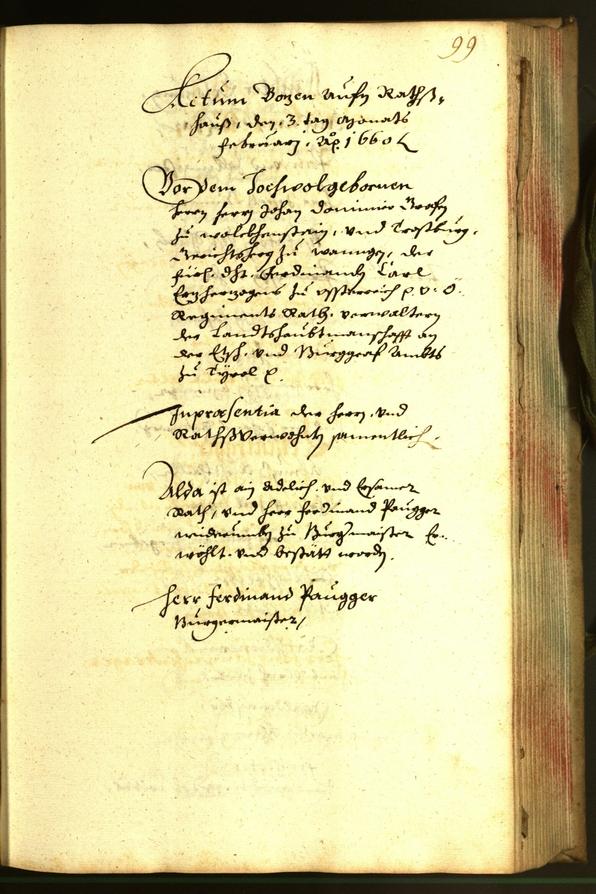 99
Actum Bozen aufn Rathß,,
hauß, den 3. tag Monats
Februarj, Ao. 1660
Vor dem Hochwolgebornen
Herrn Herrn Johan Dominico Grafen
zu Wolckhenstein, und Trostburg,
Gerichtsherr zu Wangen, der
Fürl. Dht. Ferdinandt Carl
Erzherzogens zu Össterreich p. v. Ö.
Regiments Rath, verwaltern
der Landtshaubtmanschafft an
der Etsch, und Burggraf Ambts
zu Tyrol p.
In præsentia der Herrn, und
Rathßverwohnten samentlich.
Alda ist ain Adelich, und Ersamer
Rath, und herr Ferdinand Paugger
widerumben zu Burgmaister Er,,
wöhlt, und bestätt worden.
Herr Ferdinand Paugger
Burgermaister,